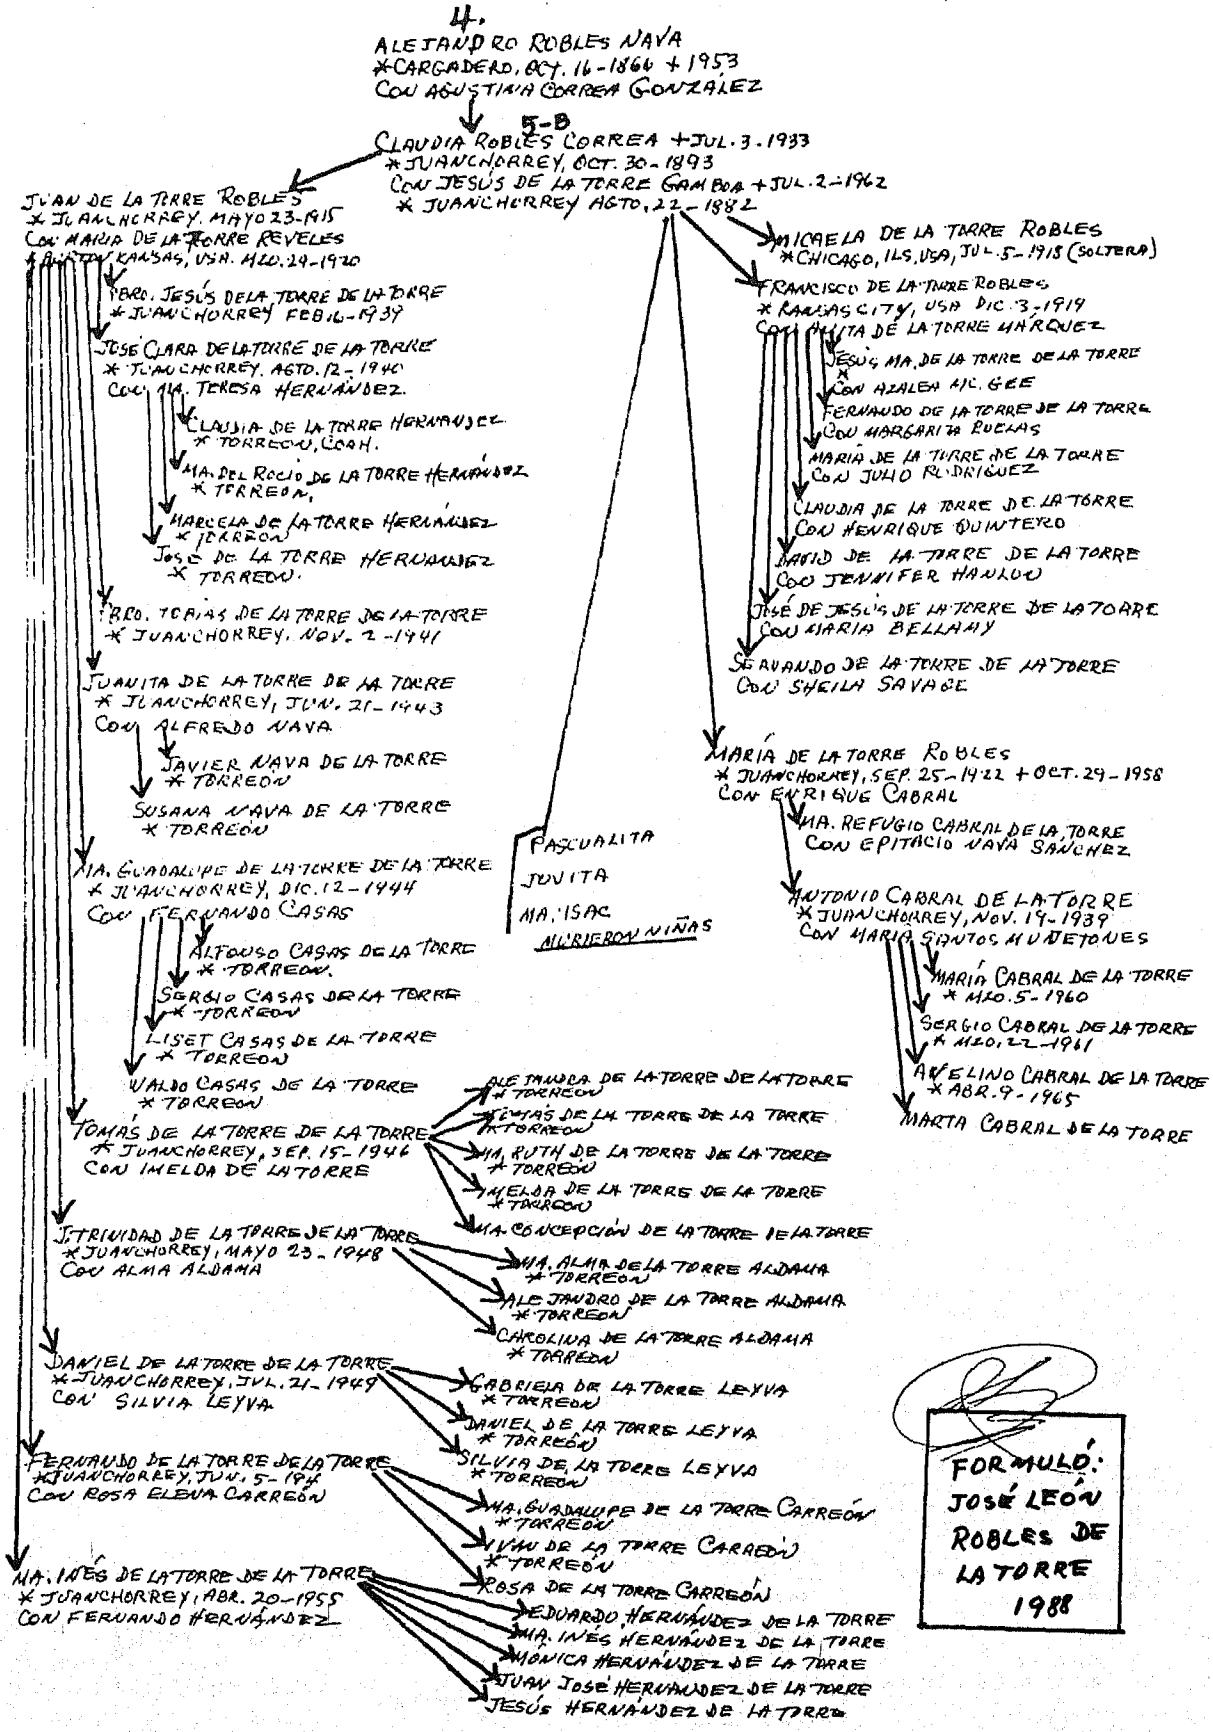 4.
ALEJANDRO ROBLES NAVA
*CARGADERO, OCT. 16-1864 +1953
CON AGUSTINA CORREA GONZÁLEZ
5-B
CLAUDIA ROBLES CORREA +JUL.3.1933
*JUANCHORREY, OCT. 30-1893
CON JESÚS DE LA TORRE GAMBOA +JUL.2-1962
* JUANCHORREY AGTO, 22-1882
JUAN DE LA TORRE ROBLES
* JUANCHORREY. MAYO 23-1915
CON MARIA DE LA TORRE REVELES
KANSAS, USA. MZO.29-1920
PBRO. JESÚS DE LA TORRE DE LA TORRE
* JUANCHORREY FEB 16-1939
JOSÉ CLARA DE LA TORRE DE LA TORRE
* JUANCHORREY. AGTO.12-1940
CON MA. TERESA HERNÁNDEZ.
CLAUDIA DE LA TORRE HERNANDEZ
* TORREON, COAH.
MA. DEL ROCIO DE LA TORRE HERNÁNDEZ
* TORREON,
MARCELA DE LA TORRE HERNÁNDEZ
* TORREON
JOSÉ DE LA TORRE HERNANDEZ
* TORREON.
PBRO. TOBIAS DE LA TORRE DE LA TORRE
* JUANCHORREY. NOV. 2-1941
JUANITA DE LA TORRE DE LA TORRE
* JUANCHORREY, JUN. 21-1943
CON ALFREDO NAVA
JAVIER NAVA DE LA TORRE
* TORREÓN
SUSANA NAVA DE LA TORRE
* TORREÓN
MA. GUADALUPE DE LA TORRE DE LA TORRE
* JUANCHORREY, DIC.12-1944
CON FERNANDO CASAS
ALFONSO CASAS DE LA TORRE
* TORREON.
SERGIO CASAS DE LA TORRE
* TORREON
LISET CASAS DE LA TORRE
* TORREON
WALDO CASAS DE LA TORRE
* TORREON
TOMÁS DE LA TORRE DE LA TORRE
* JUANCHORREY, SEP. 15-1946
CON IMELDA DE LA TORRE
ALEJANDRA DE LA TORRE DE LA TORRE
* TORREON
TOMÁS DE LA TORRE DE LA TORRE
*TORREON
MA. RUTH DE LA TORRE DE LA TORRE
* TORREÓN
IMELDA DE LA TORRE DE LA TORRE
* TORREON
MA. CONCEPCIÓN DE LA TORRE DE LA TORRE
J.TRINIDAD DE LA TORRE DE LA TORRE
*JUANCHORREY, MAYO 23-1948
CON ALMA ALDAMA
MA. ALMA DE LA TORRE ALDAMA
* TORREON
ALEJANDRO DE LA TORRE ALDAMA
* TORREON
CAROLINA DE LA TORRE ALDAMA
* TORREON
DANIEL DE LA TORRE DE LA TORRE
*JUANCHORREY, JUL.21-1949
CON SILVIA LEYVA
GABRIELA DE LA TORRE LEYVA
* TORREÓN
DANIEL DE LA TORRE LEYVA
* TORREÓN
SILVIA DE LA TORRE LEYVA
* TORREON
FERNANDO DE LA TORRE DE LA TORRE
*JUANCHORREY, JUN. 5-194
CON ROSA ELENA CARREÓN
MA. GUADALUPE DE LA TORRE CARREÓN
* TORREÓN
DE LA TORRE CARREÓN
* TORREÓN
ROSA DE LA TORRE CARREÓN
MA. INÉS DE LA TORRE DE LA TORRE
* JUANCHORREY, ABR. 20-1955
CON FERNANDO HERNÁNDEZ
EDUARDO HERNÁNDEZ DE LA TORRE
MA. INÉS HERNÁNDEZ DE LA TORRE
MÓNICA HERNÁNDEZ DE LA TORRE
JUAN JOSÉ HERNANDEZ DE LA TORRE
JESÚS HERNÁNDEZ DE LA TORRE
PASCUALITA
JUVITA
MA. ISAC
MURIERON NIÑAS
MICAELA DE LA TORRE ROBLES
*CHICAGO, ILS, USA, JUL.5-1918 (SOLTERA)
FRANCISCO DE LA TORRE ROBLES
* KANSAS CITY, USA DIC.3-1919
CON ANITA DE LA TORRE MÁRQUEZ
JESÚS MA. DE LA TORRE DE LA TORRE
*
CON AZALEA MC. GEE
FERNANDO DE LA TORRE DE LA TORRE
CON MARGARITA RUELAS
MARÍA DE LA TORRE DE LA TORRE
CON JULIO RODRIGUEZ
CLAUDIA DE LA TORRE DE LA TORRE
CON HENRIQUE QUINTERO
DAVID DE LA TORRE DE LA TORRE
CON JENNIFER HANLON
JOSÉ DE JESÚS DE LA TORRE DE LA TORRE
CON MARIA BELLAMY
SERVANDO DE LA TORRE DE LA TORRE
CON SHEILA SAVAGE
MARÍA DE LA TORRE ROBLES
* JUANCHORREY, SEP. 25-1922 + OCT.29-1958
CON ENRIQUE CABRAL
MA. REFUGIO CABRAL DE LA TORRE
CON EPITACIO NAVA SÁNCHEZ
ANTONIO CABRAL DE LA TORRE
* JUANCHORREY, NOV. 19-1939
CON MARIA SANTOS MUÑETONES
MARÍA CABRAL DE LA TORRE
* MZO.5-1960
SERGIO CABRAL DE LA TORRE
* MZO.22-1961
AVELINO CABRAL DE LA TORRE
* ABR.9-1965
MARTA CABRAL DE LA TORRE
FORMULÓ:
JOSÉ LEÓN
ROBLES DE
LA TORRE
1988